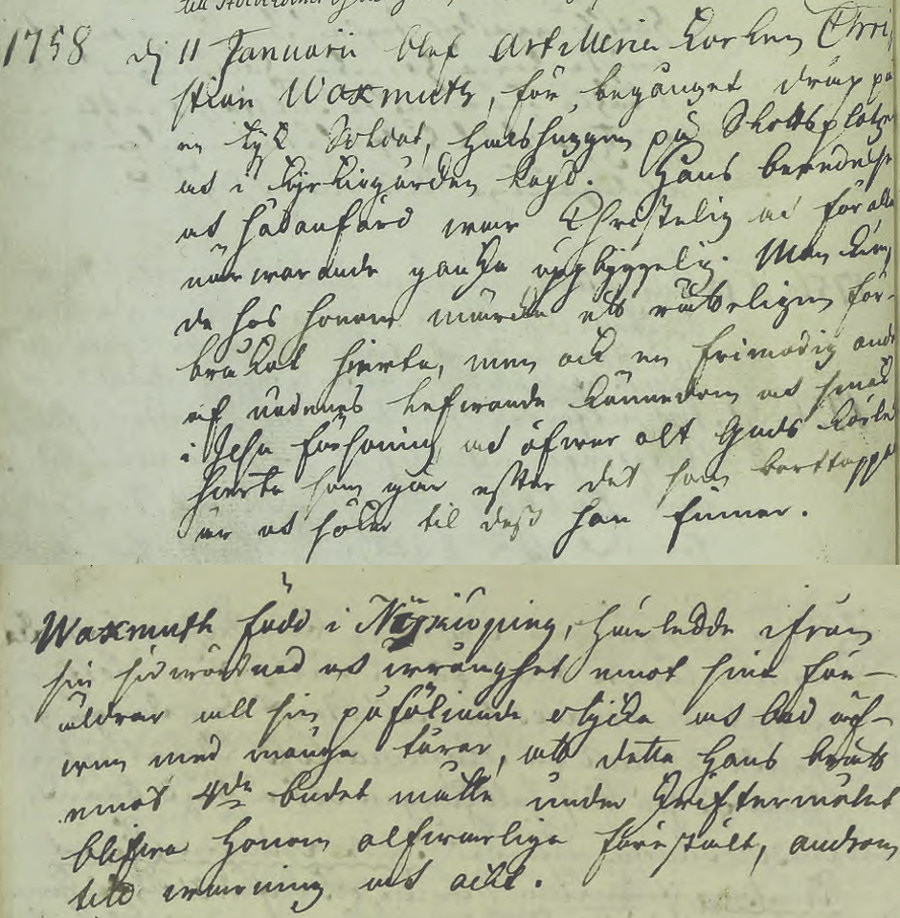 till Stockholms
1758 dj 11 Januarii blef Artillerie Kocken Chri
stian Waxmuth, för begånget dråp på
en tysk Soldat, halshuggen på Slottsplatze
at i kyrkiogården lagd. Hans beredelse
at hädanfärd war Christelig at för alla
närwarande ganska uppbyggelig. Man kän
de hos honom märcka ett rätteligen för-
bråkat hierta, men ock en frimodig ande
af nådenes lefwande kännedom at smak
i Jesu försoning, at öfwer alt Guds kärleks
hierta som går efter det som borttappt
är at söker til dess han finner.
Waxmuth född i Nyköping, härledde ifrån
sin sidwördnad at wrånghet emot sina för-
äldrar all sin påföljande olycka at bad äf-
wen med många tårar, att detta hans brått
emot 4de budet måtte under Griftermålet
blifwa honom alfwarliga förestält, androm
till warning at ackt.